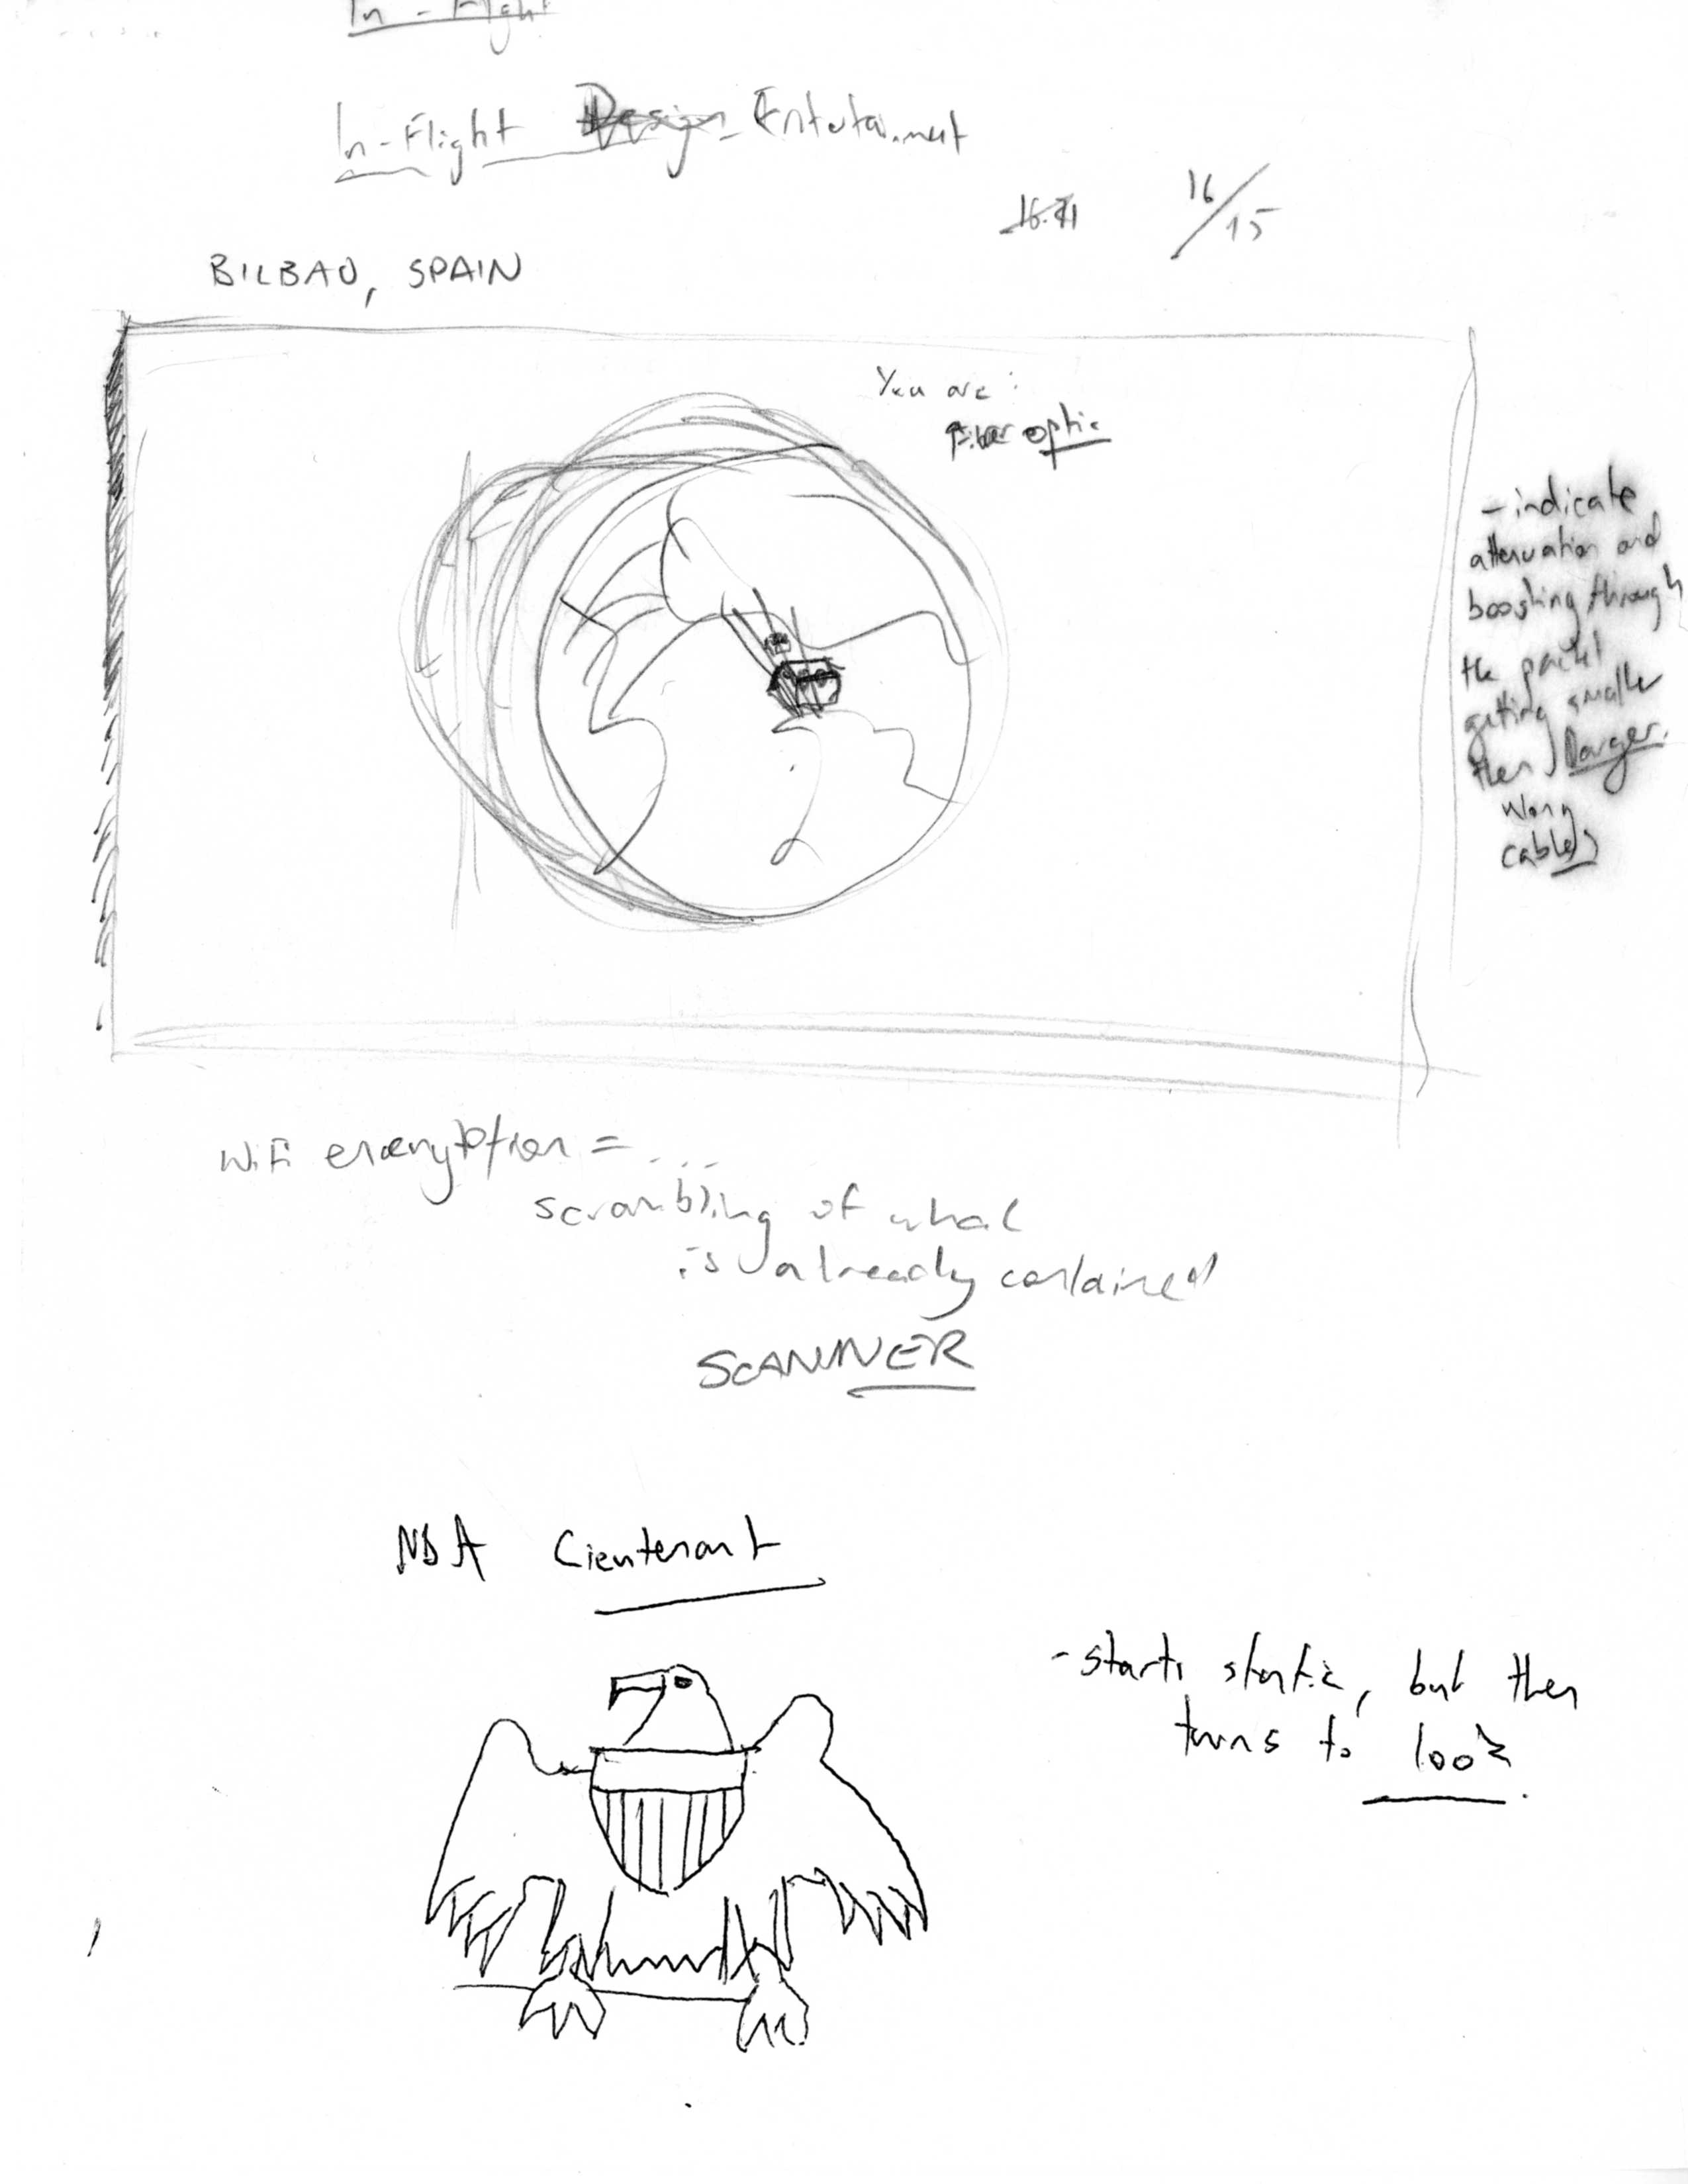 In-Flight
In-Flight Design Entertainment
16.91
16/15
BILBAO, SPAIN
You are:
Fiber optic
- indicate
attenuation and
boosting through
the packet
getting smaller
then larger.
along
cables
WiFi encryption = ...
scrambling of what
is already contained
SCANNER
NSA Lieutenant
- starts static, but then
turns to look.